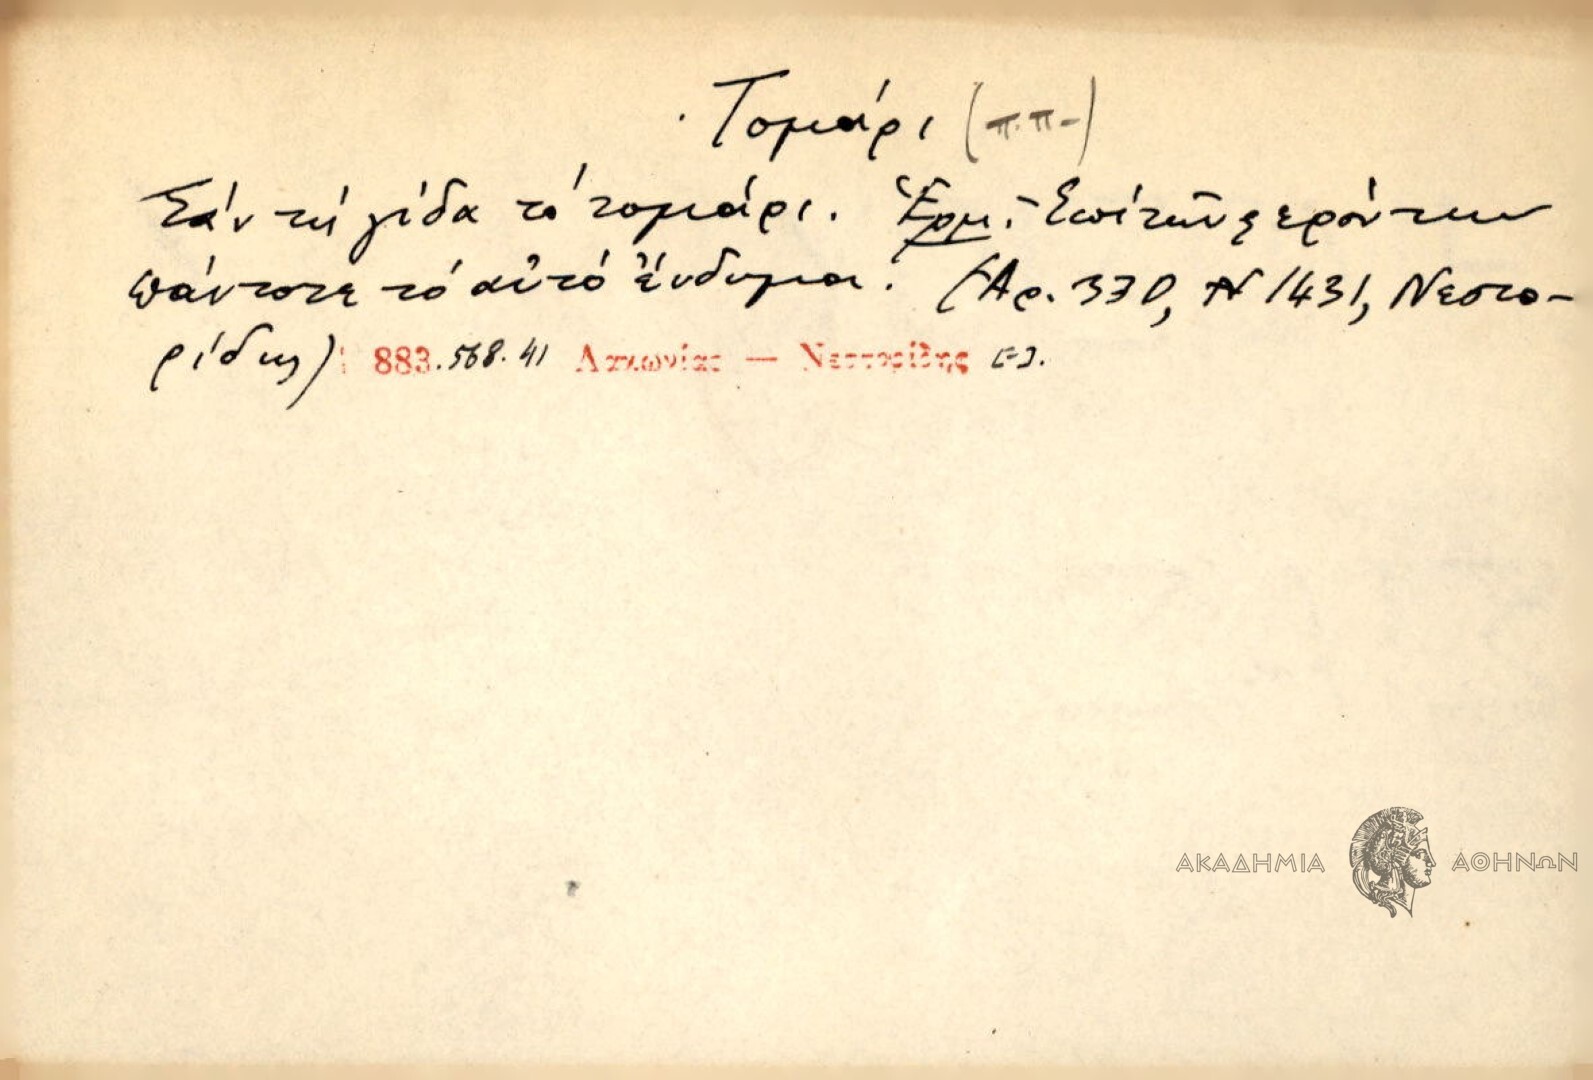 Τομάρι (π.π.-)
Σάν τή γίδα τό τομάρι. Ἑρμ.- Ἐπί τῶν φερόντων
πάντοτε τό αὐτό ἔνδυμα. (Ἀρ. 330, Ν 1431, Νεστο-
ρίδης) 883.568.41 Λακωνίας — Νεστορίδης
ΑΚΑΔΗΜΙΑ ΑΘΗΝΩΝ